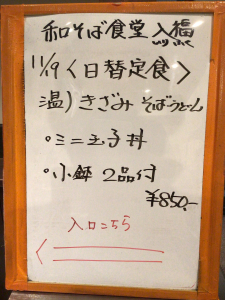 和そば食堂
11/19〈日替定食〉
温)きざみ そばうどん
・ミニ玉子丼
・小鉢 2品付
¥850.-
入口こちら